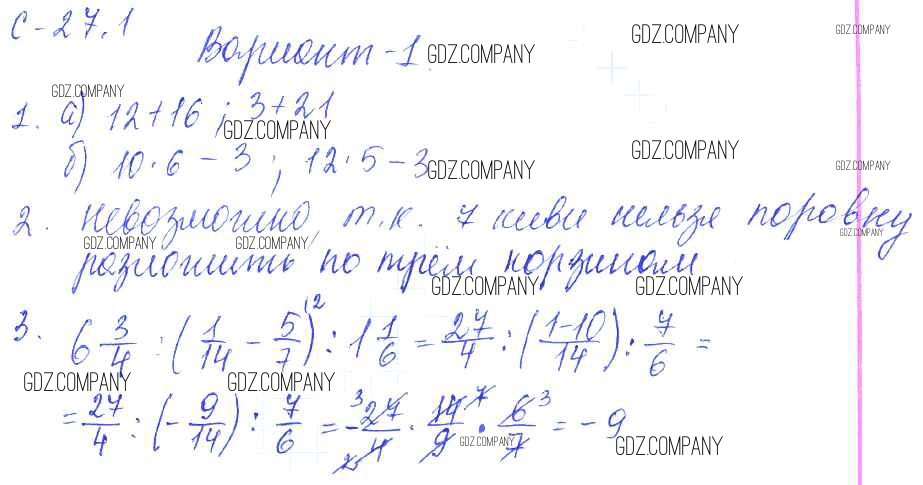 С-27.1
Вариант-1 GDZ.COMPANY GDZ.COMPANY GDZ.COMPANY
GDZ.COMPANY
1. а) 12+16 ; 3+21
GDZ.COMPANY GDZ.COMPANY
б) 10·6-3 ; 12·5-3 GDZ.COMPANY GDZ.COMPANY
2. невозможно, т.к. 7 киви нельзя поровну
GDZ.COMPANY GDZ.COMPANY GDZ.COMPANY
разложить по трём корзинам
GDZ.COMPANY GDZ.COMPANY
3. 6 3/4 : (1/14 - 5/7)^(2 : 1 1/6 = 27/4 : (1-10/14) : 7/6 =
GDZ.COMPANY GDZ.COMPANY
= 27/4 : (-9/14) : 7/6 = -27/4 · 14/9 · 6/7 = -9
GDZ.COMPANY GDZ.COMPANY